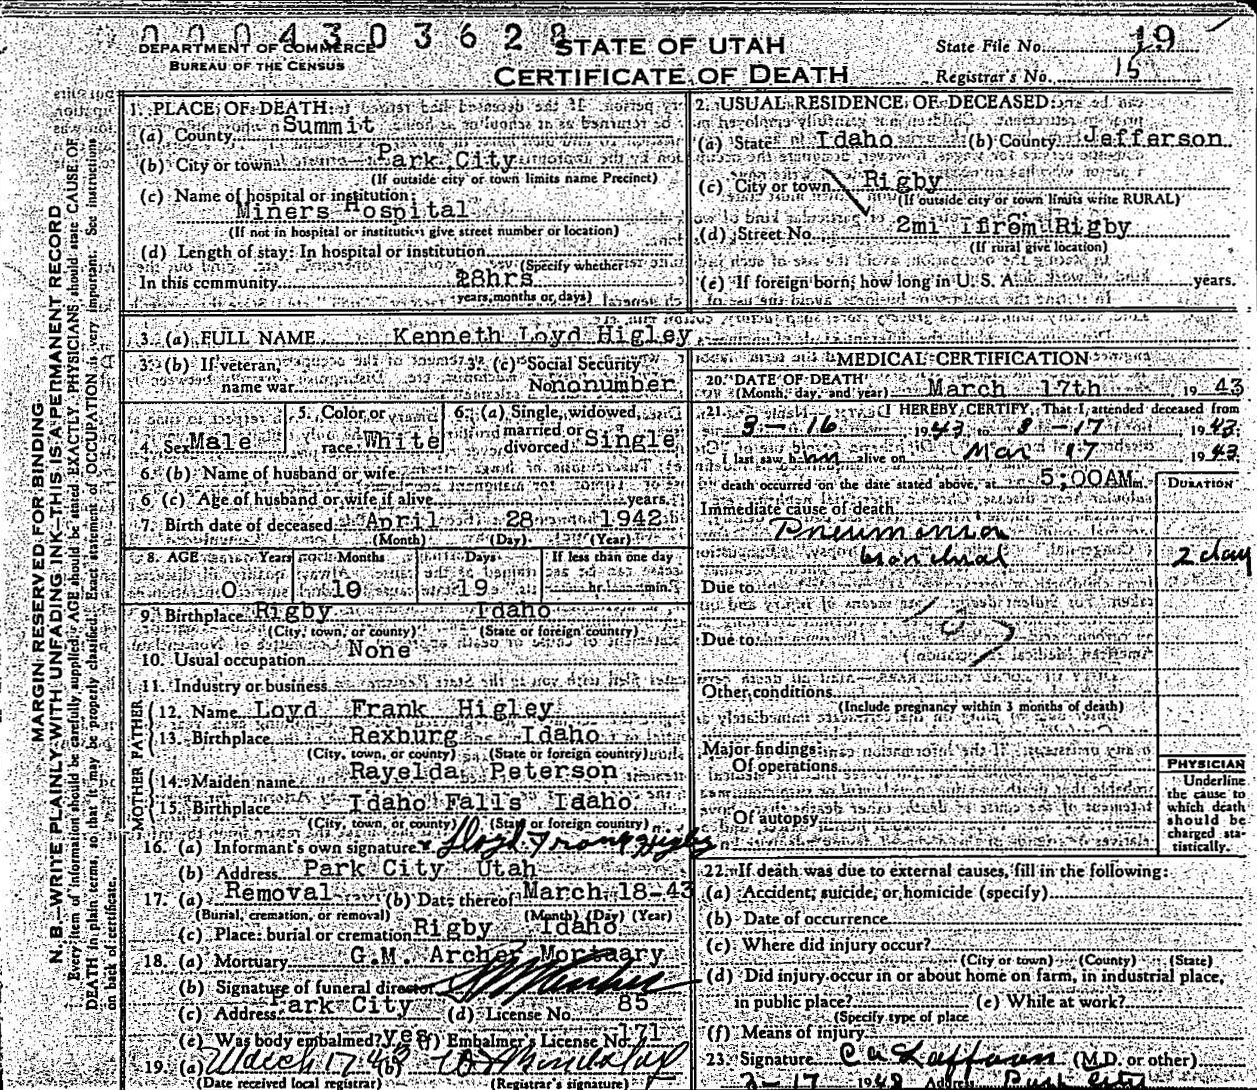 0004303628
DEPARTMENT OF COMMERCE
BUREAU OF THE CENSUS
STATE OF UTAH
CERTIFICATE OF DEATH
State File No. 19
Registrar's No. 15
MARGIN RESERVED FOR BINDING
N. B.—WRITE PLAINLY WITH UNFADING INK—THIS IS A PERMANENT RECORD
Every item of information should be carefully supplied. AGE should be stated EXACTLY. PHYSICIANS should state CAUSE OF
DEATH in plain terms, so that it may be properly classified. Exact statement of OCCUPATION is very important. See instructions
on back of certificate.
1. PLACE OF DEATH:
(a) County Summit
(b) City or town Park City
(If outside city or town limits name Precinct)
(c) Name of hospital or institution:
Miners Hospital
(If not in hospital or institution give street number or location)
(d) Length of stay: In hospital or institution
(Specify whether
In this community 28hrs
years, months or days)
2. USUAL RESIDENCE OF DECEASED:
(a) State Idaho (b) County Jefferson
(c) City or town Rigby
(If outside city or town limits write RURAL)
(d) Street No. 2mi from Rigby
(If rural give location)
(e) If foreign born, how long in U. S. A. years.
3. (a) FULL NAME Kenneth Loyd Higley
3. (b) If veteran,
name war
3. (c) Social Security
No. nonumber
4. Sex Male
5. Color or
race White
6. (a) Single, widowed,
married or
divorced Single
6. (b) Name of husband or wife
6 (c) Age of husband or wife if alive years
7. Birth date of deceased April 28 1942
(Month) (Day) (Year)
8. AGE Years Months Days If less than one day
0 10 19 hr. min.
9. Birthplace Rigby Idaho
(City, town, or county) (State or foreign country)
10. Usual occupation None
11. Industry or business
FATHER
12. Name Loyd Frank Higley
13. Birthplace Rexburg Idaho
(City, town, or county) (State or foreign country)
MOTHER
14. Maiden name Rayelda Peterson
15. Birthplace Idaho Falls Idaho
(City, town, or county) (State or foreign country)
16. (a) Informant's own signature Lloyd Frank Higley
(b) Address Park City Utah
17. (a) Removal (b) Date thereof March 18-43
(Burial, cremation, or removal) (Month) (Day) (Year)
(c) Place: burial or cremation Rigby Idaho
18. (a) Mortuary G.M. Archer Mortuary
(b) Signature of funeral director
(c) Address Park City (d) License No. 85
(e) Was body embalmed? yes (f) Embalmer's License No. 171
19. (a) March 17 43 (b)
(Date received local registrar) (Registrar's signature)
MEDICAL CERTIFICATION
20. DATE OF DEATH
(Month, day, and year) March 17th 1943
21. I HEREBY CERTIFY, That I attended deceased from
3-16 1943 to 3-17 1943
I last saw him alive on Mar 17 1943
death occurred on the date stated above, at 5;00AM m.
DURATION
Immediate cause of death
Pneumonia
bronchial 2 day
Due to
107
Due to
Other conditions
(Include pregnancy within 3 months of death)
Major findings:
Of operations
Of autopsy
PHYSICIAN
Underline
the cause to
which death
should be
charged sta-
tistically.
22. If death was due to external causes, fill in the following:
(a) Accident, suicide, or homicide (specify)
(b) Date of occurrence
(c) Where did injury occur?
(City or town) (County) (State)
(d) Did injury occur in or about home on farm, in industrial place,
in public place? (e) While at work?
(Specify type of place
(f) Means of injury
23. Signature (M.D. or other)
3-17 1943 Address Park City